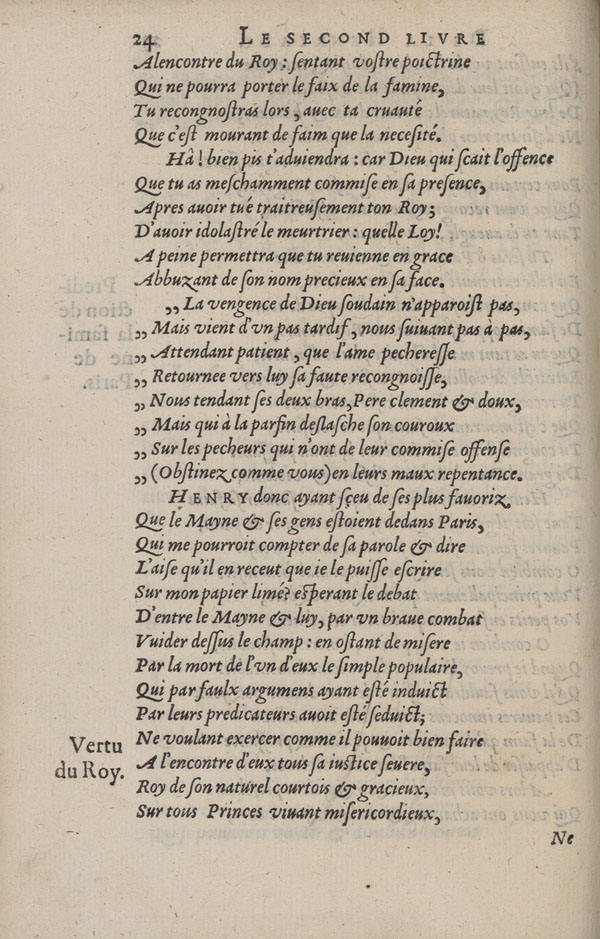 24 LE SECOND LIVRE
Alencontre du Roy : sentant vostre poictrine
Qui ne pourra porter le faix de la famine,
Tu recongnostras lors, auec ta cruauté
Que c'est mourant de faim que la necesité.
Hâ! bien pis t'aduiendra : car Dieu qui scait l'offence
Que tu as meschamment commise en sa presence,
Apres auoir tué traitreusement ton Roy;
D'auoir idolastré le meurtrier : quelle Loy!
A peine permettra que tu reuienne en grace
Abbuzant de son nom precieux en sa face.
„ La vengence de Dieu soudain n'apparoist pas,
„ Mais vient d'vn pas tardif, nous suiuant pas à pas,
„ Attendant patient, que l'ame pecheresse
„ Retournee vers luy sa faute recongnoisse,
„ Nous tendant ses deux bras, Pere clement & doux,
„ Mais qui à la parfin deslasche son couroux
„ Sur les pecheurs qui n'ont de leur commise offense
„ (Obstinez comme vous) en leurs maux repentance.
HENRY donc ayant sçeu de ses plus fauoriz
Que le Mayne & ses gens estoient dedans Paris,
Qui me pourroit compter de sa parole & dire
L'aise qu'il en receut que ie le puisse escrire
Sur mon papier limé? esperant le debat
D'entre le Mayne & luy, par vn braue combat
Vuider dessus le champ : en ostant de misere
Par la mort de l'vn d'eux le simple populaire,
Qui par faulx argumens ayant esté induict
Par leurs predicateurs auoit esté seduict;
Vertu
du Roy.
Ne voulant exercer comme il pouuoit bien faire
A l'encontre d'eux tous sa iustice seuere,
Roy de son naturel courtois & gracieux,
Sur tous Princes viuant misericordieux,
Ne